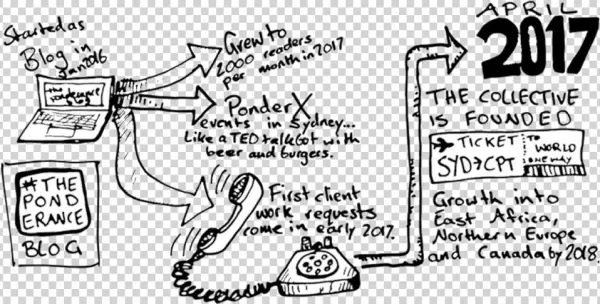 Started as
Blog in
Jan 2016
the
ponderance
blog
Grew to
2000 readers
per month in 2017
PonderX
events in Sydney...
Like a TED talk but with
beer and burgers.
#THE
POND
ERANCE
BLOG
First client
work requests
come in early 2017.
APRIL
2017
THE COLLECTIVE
IS FOUNDED
TICKET
SYD→CPT
TO
WORLD
ONE WAY
Growth into
East Africa,
Northern Europe
and Canada by 2018.